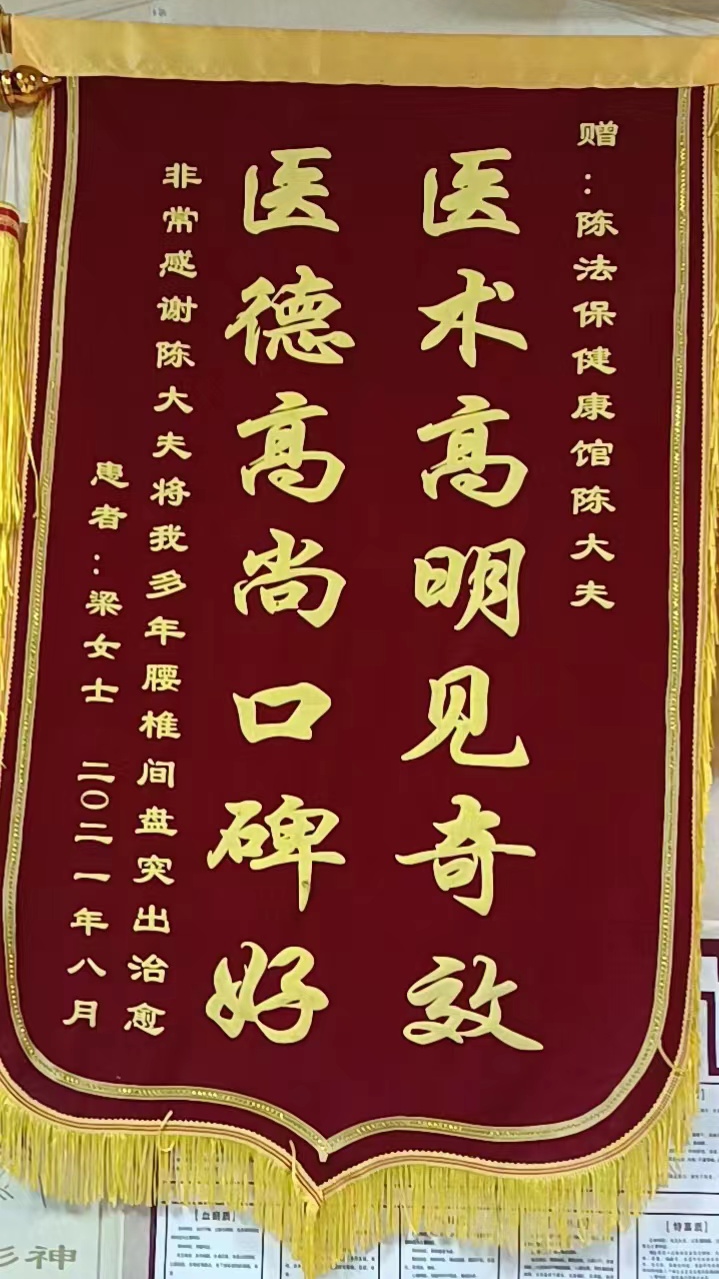 赠：陈法保健康馆陈大夫
医术高明见奇效
医德高尚口碑好
非常感谢陈大夫将我多年腰椎间盘突出治愈
患者：梁女士 二〇二一年八月
【血瘀质】
【特禀质】
神